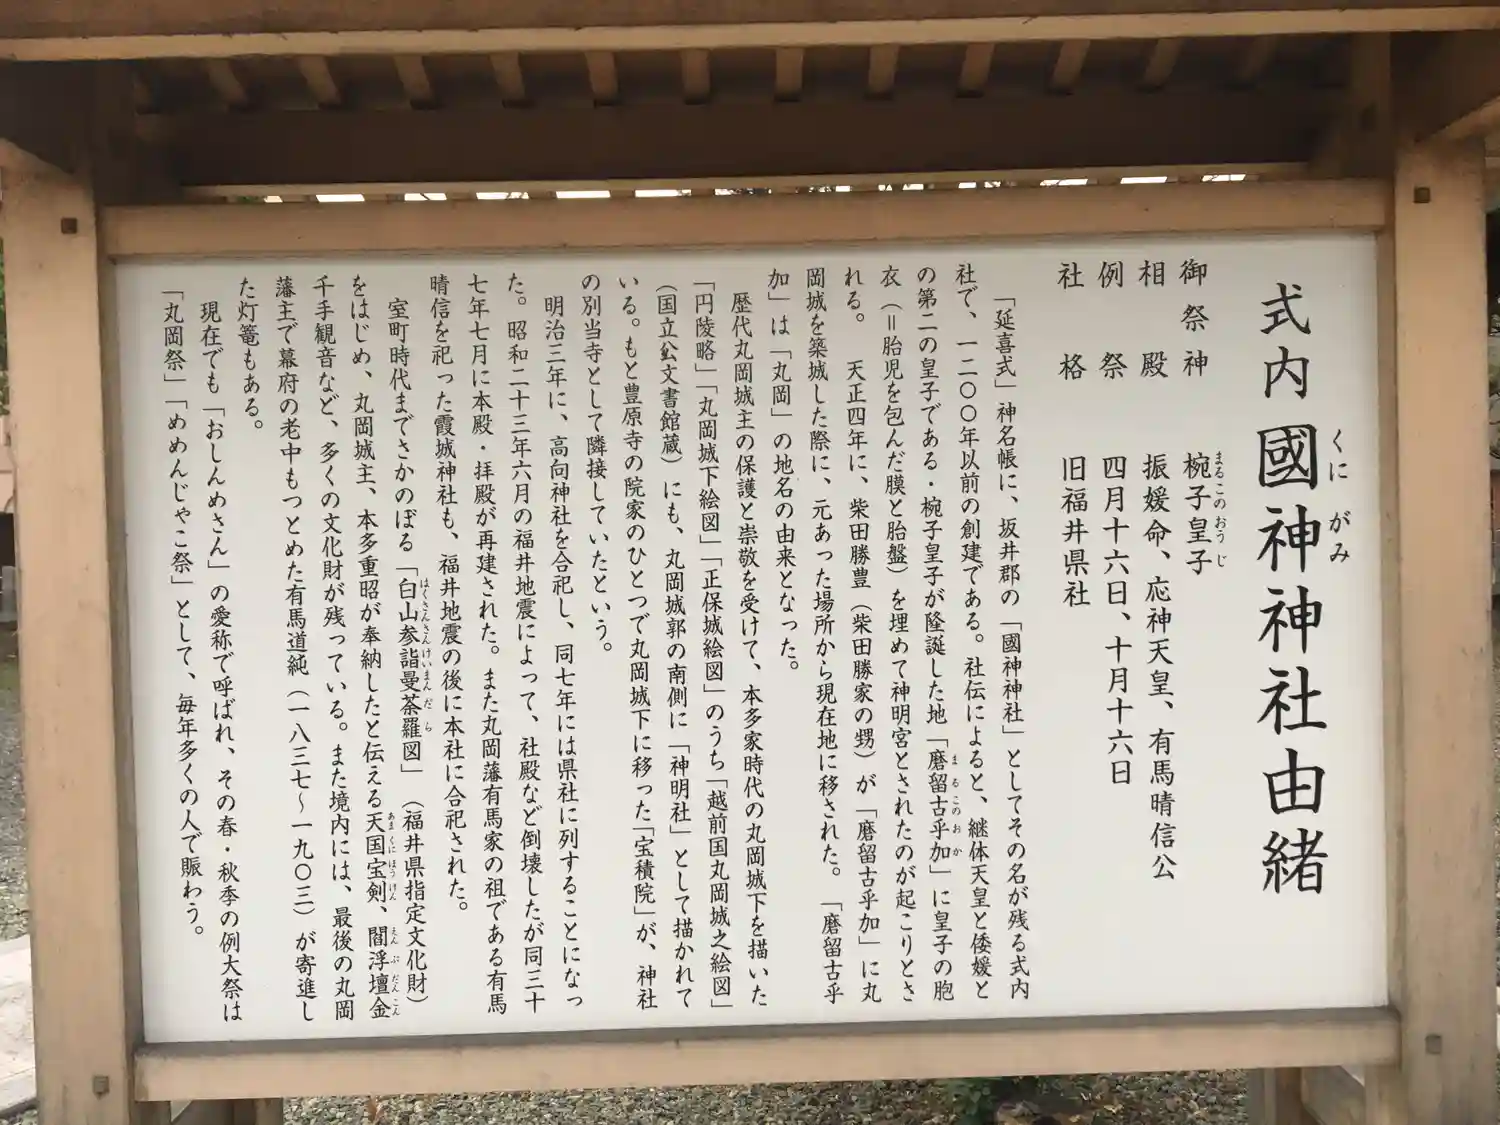 式内國神神社由緒
くに がみ
御祭神 椀子皇子
まるこのおうじ
相殿 振媛命、応神天皇、有馬晴信公
例祭 四月十六日、十月十六日
社格 旧福井県社
「延喜式」神名帳に、坂井郡の「國神神社」としてその名が残る式内
社で、一二〇〇年以前の創建である。社伝によると、継体天皇と倭媛と
の第二の皇子である・椀子皇子が隆誕した地「磨留古乎加」に皇子の胞
まるこのおか
衣（＝胎児を包んだ膜と胎盤）を埋めて神明宮とされたのが起こりとさ
れる。 天正四年に、柴田勝豊（柴田勝家の甥）が「磨留古乎加」に丸
岡城を築城した際に、元あった場所から現在地に移された。「磨留古乎
加」は「丸岡」の地名の由来となった。
歴代丸岡城主の保護と崇敬を受けて、本多家時代の丸岡城下を描いた
「円陵略」「丸岡城下絵図」「正保城絵図」のうち「越前国丸岡城之絵図」
（国立公文書館蔵）にも、丸岡城郭の南側に「神明社」として描かれて
いる。もと豊原寺の院家のひとつで丸岡城下に移った「宝積院」が、神社
の別当寺として隣接していたという。
明治三年に、高向神社を合祀し、同七年には県社に列することになっ
た。昭和二十三年六月の福井地震によって、社殿など倒壊したが同三十
七年七月に本殿・拝殿が再建された。また丸岡藩有馬家の祖である有馬
晴信を祀った霞城神社も、福井地震の後に本社に合祀された。
室町時代までさかのぼる「白山参詣曼荼羅図」（福井県指定文化財）
はくさんさんけいまんだら
をはじめ、丸岡城主、本多重昭が奉納したと伝える天国宝剣、閻浮壇金
あまくにほうけん えんぶだんこん
千手観音など、多くの文化財が残っている。また境内には、最後の丸岡
藩主で幕府の老中もつとめた有馬道純（一八三七〜一九〇三）が寄進し
た灯篭もある。
現在でも「おしんめさん」の愛称で呼ばれ、その春・秋季の例大祭は
「丸岡祭」「めめんじゃこ祭」として、毎年多くの人で賑わう。